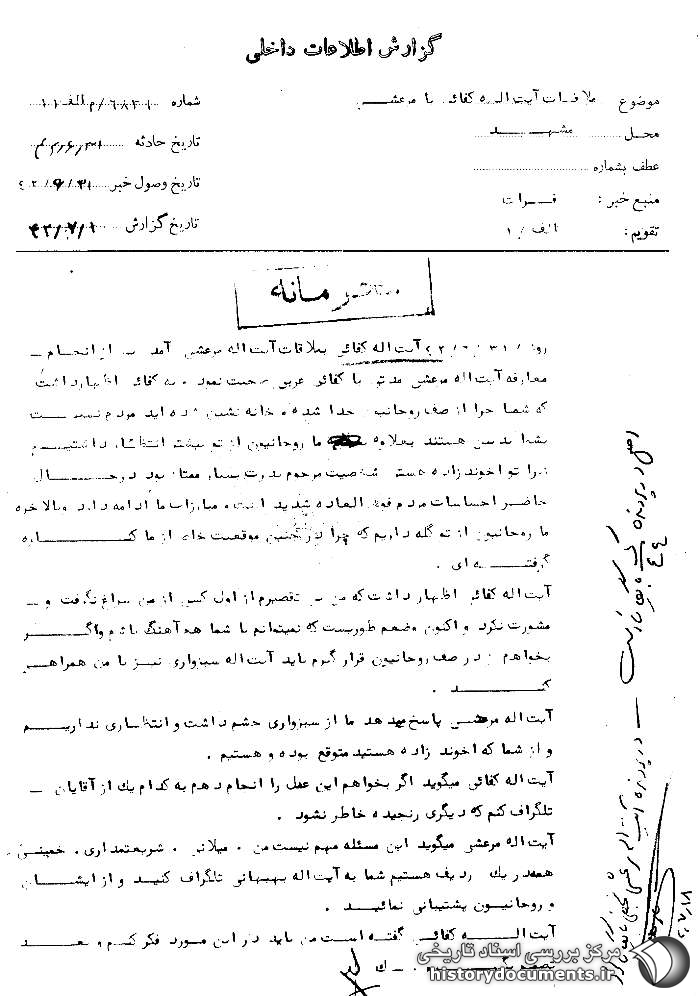 گزارش اطلاعات داخلی
موضوع ملاقات آیت اله کفائی با مرعشی
محل مشهد
عطف بشماره
منبع خبر : فرات
تقویم : الف / ۱
شماره
تاریخ حادثه
تاریخ وصول خبر
تاریخ گزارش ۴۲/۷/۱
محرمانه
روز ۴۲/۶/۳۱ آیت اله کفائی بملاقات آیت اله مرعشی آمد از انجام
آیت اله مرعشی مدتی با کفائی عربی صحبت نمود به کفائی اظهار داشت
که شما چرا از صف روحانیون جدا شده و خانه نشین شده اید مردم نسبت
بشما بدبین هستند بعلاوه ما روحانیون از تو بیشتر انتظار داشتیم
زیرا تو آخوند زاده هستی شخصیت مرحوم پدرت بسیار ممتاز بود در حال
حاضر احساسات مردم فوق العاده شدید است و مبارزات ما ادامه دارد وبالاخره
ما روحانیون از تو گله داریم که چرا در چنین موقعیت خاص از ما کناره
گرفته ای .
آیت اله کفائی اظهار داشت که من بی تقصیرم از اول کسی از من سراغ نگرفت و
مشورت نکرد و اکنون وضعم طوریست که نمیتوانم با شما هم آهنگ باشم واگر
بخواهم در صف روحانیون قرار گیرم باید آیت اله سبزواری نیز با من همراهی
کند .
آیت اله مرعشی پاسخ میدهد ما از سبزواری چشم داشت و انتظاری نداریم
و از شما که آخوند زاده هستید متوقع بوده و هستیم .
آیت اله کفائی میگوید اگر بخواهم این عمل را انجام دهم به کدام یک از آقایان
تلگراف کنم که دیگری رنجیده خاطر نشود .
آیت اله مرعشی میگوید این مسئله مهم نیست من ، میلانی ، شریعتمداری ، خمینی
همه در یک ردیف هستیم شما به آیت اله بهبهانی تلگراف کنید و از ایشان
و روحانیون پشتیبانی نمائید .
آیت اله کفائی گفته است من باید در این مورد فکر کنم و بعد
اصل در پرونده
در پرونده آیت اله مرعشی نجفی
مرکز بررسی اسناد تاریخی
historydocuments.ir